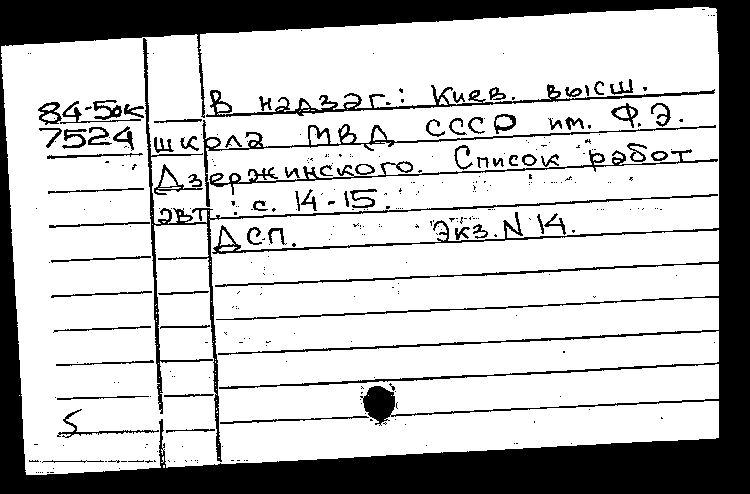 84-5ок В надзаг.: Киев. высш.
7524 школа МВД СССР им. Ф.Э.
Дзержинского. Список работ
авт.: с. 14-15.
ДСП. Экз. N 14.
5